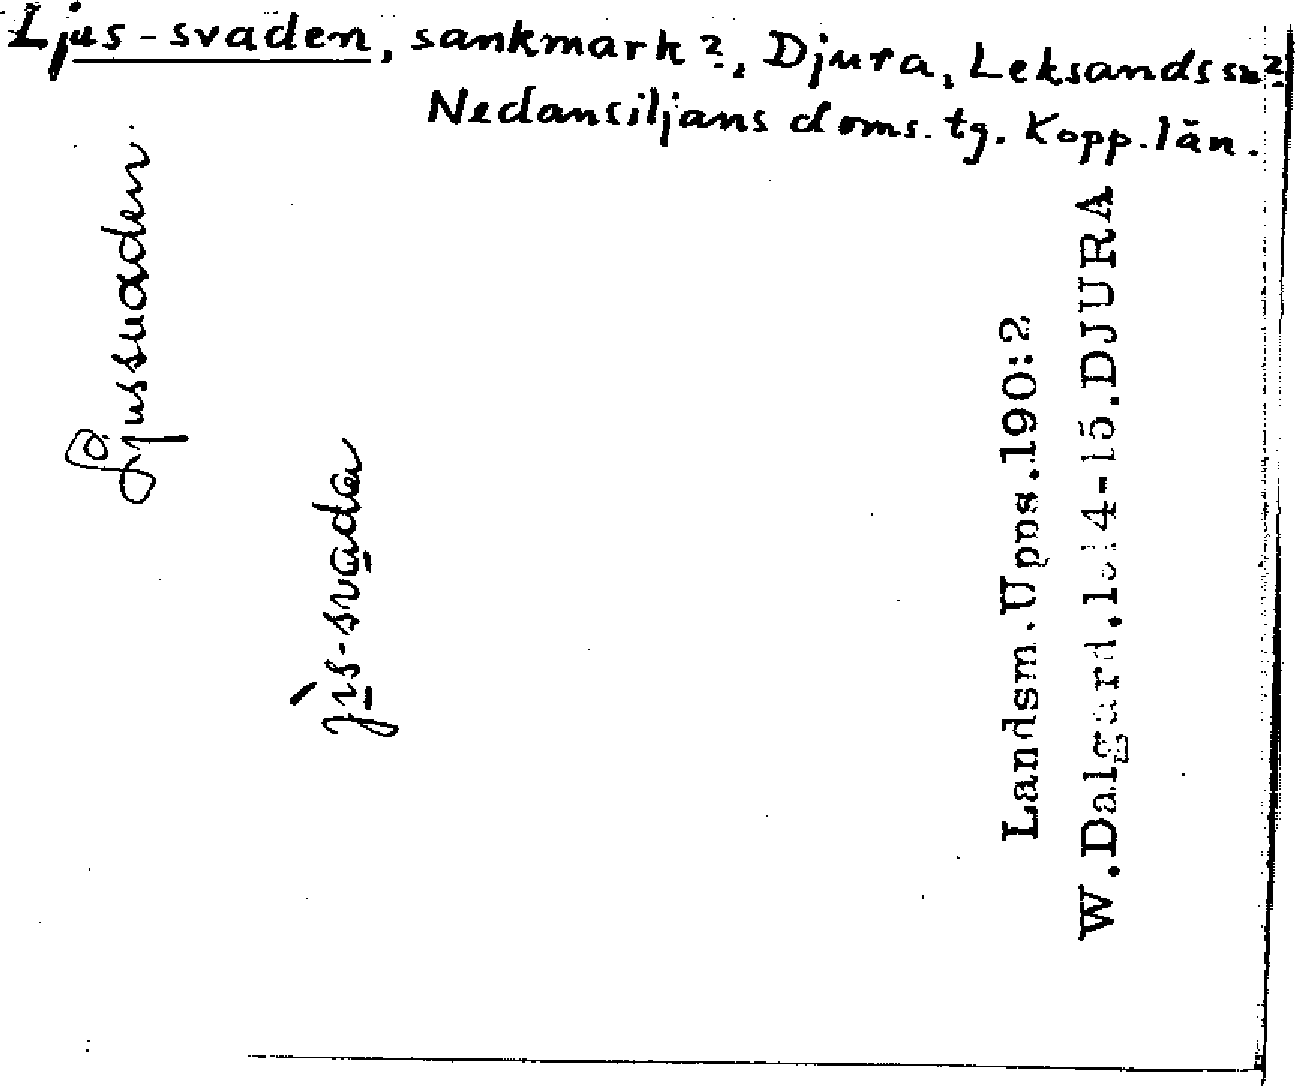 Ljus-svaden, sankmark?, Djura, Leksands sn?
Nedansiljans doms. tg. Kopp. län.
Ljussvaden
Landsm.Upps.190:2
W.Dalgard,1914-15.DJURA